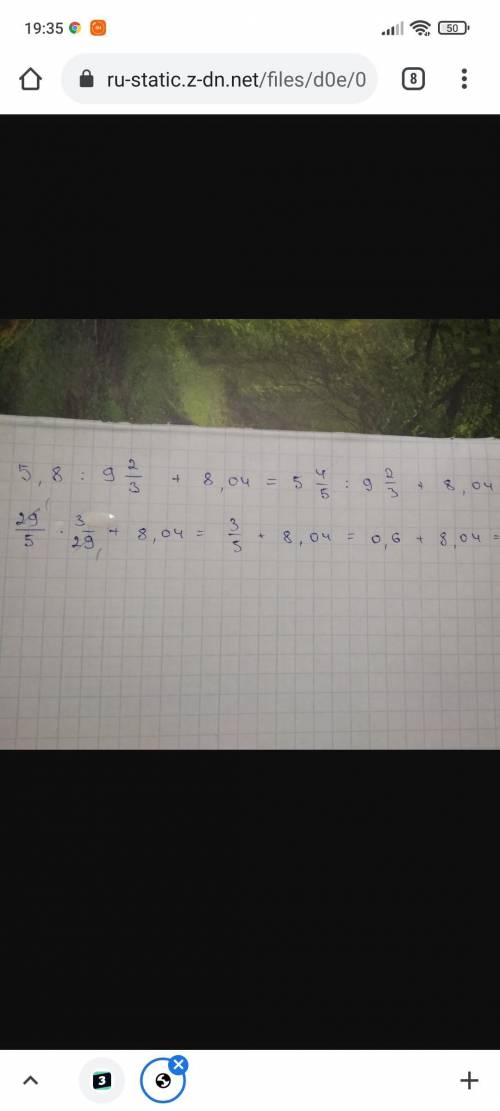 19:35 50
ru-static.z-dn.net/files/d0e/0 8
5,8 : 9 2/3 + 8,04 = 5 4/5 : 9 2/3 + 8,04
29/5 · 3/29 + 8,04 = 3/5 + 8,04 = 0,6 + 8,04 =
3